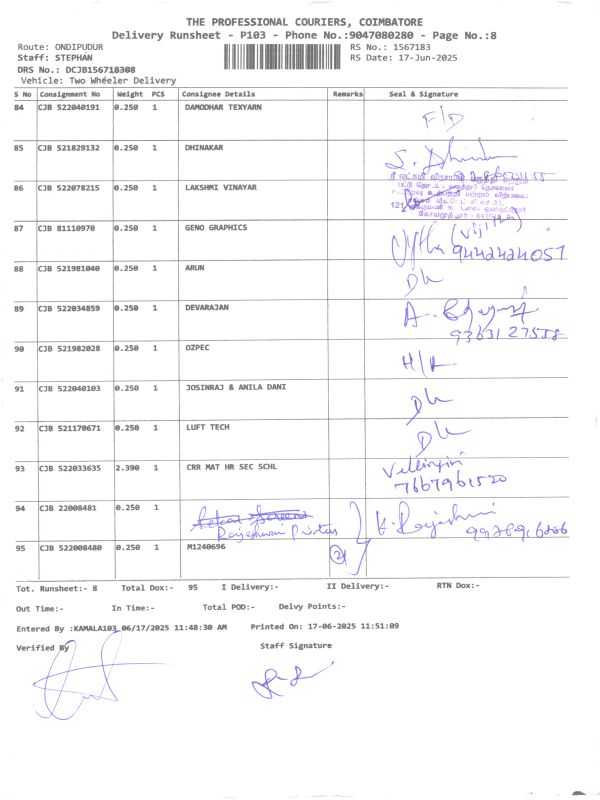 THE PROFESSIONAL COURIERS, COIMBATORE
Delivery Runsheet - P103 - Phone No.:9047080280 - Page No.:8
Route: ONDIPUDUR RS No.: 1567183
Staff: STEPHAN RS Date: 17-Jun-2025
DRS No.: DCJB156718308
Vehicle: Two Wheeler Delivery
S No Consignment No Weight PCS Consignee Details Remarks Seal & Signature
84 CJB 522040191 0.250 1 DAMODHAR TEXYARN F/D
85 CJB 521829132 0.250 1 DHINAKAR
86 CJB 522078215 0.250 1 LAKSHMI VINAYAR
87 CJB 81110970 0.250 1 GENO GRAPHICS
9442424057
88 CJB 521981040 0.250 1 ARUN
89 CJB 522034859 0.250 1 DEVARAJAN
9363127558
90 CJB 521982028 0.250 1 OZPEC
91 CJB 522040103 0.250 1 JOSINRAJ & ANILA DANI
92 CJB 521170671 0.250 1 LUFT TECH
93 CJB 522033635 2.390 1 CRR MAT HR SEC SCHL
7667961520
94 CJB 22008481 0.250 1
95 CJB 522008480 0.250 1 M1240696 2
Tot. Runsheet:- 8 Total Dox:- 95 I Delivery:- II Delivery:- RTN Dox:-
Out Time:- In Time:- Total POD:- Delvy Points:-
Entered By :KAMALA103 06/17/2025 11:48:30 AM Printed On: 17-06-2025 11:51:09
Verified By Staff Signature